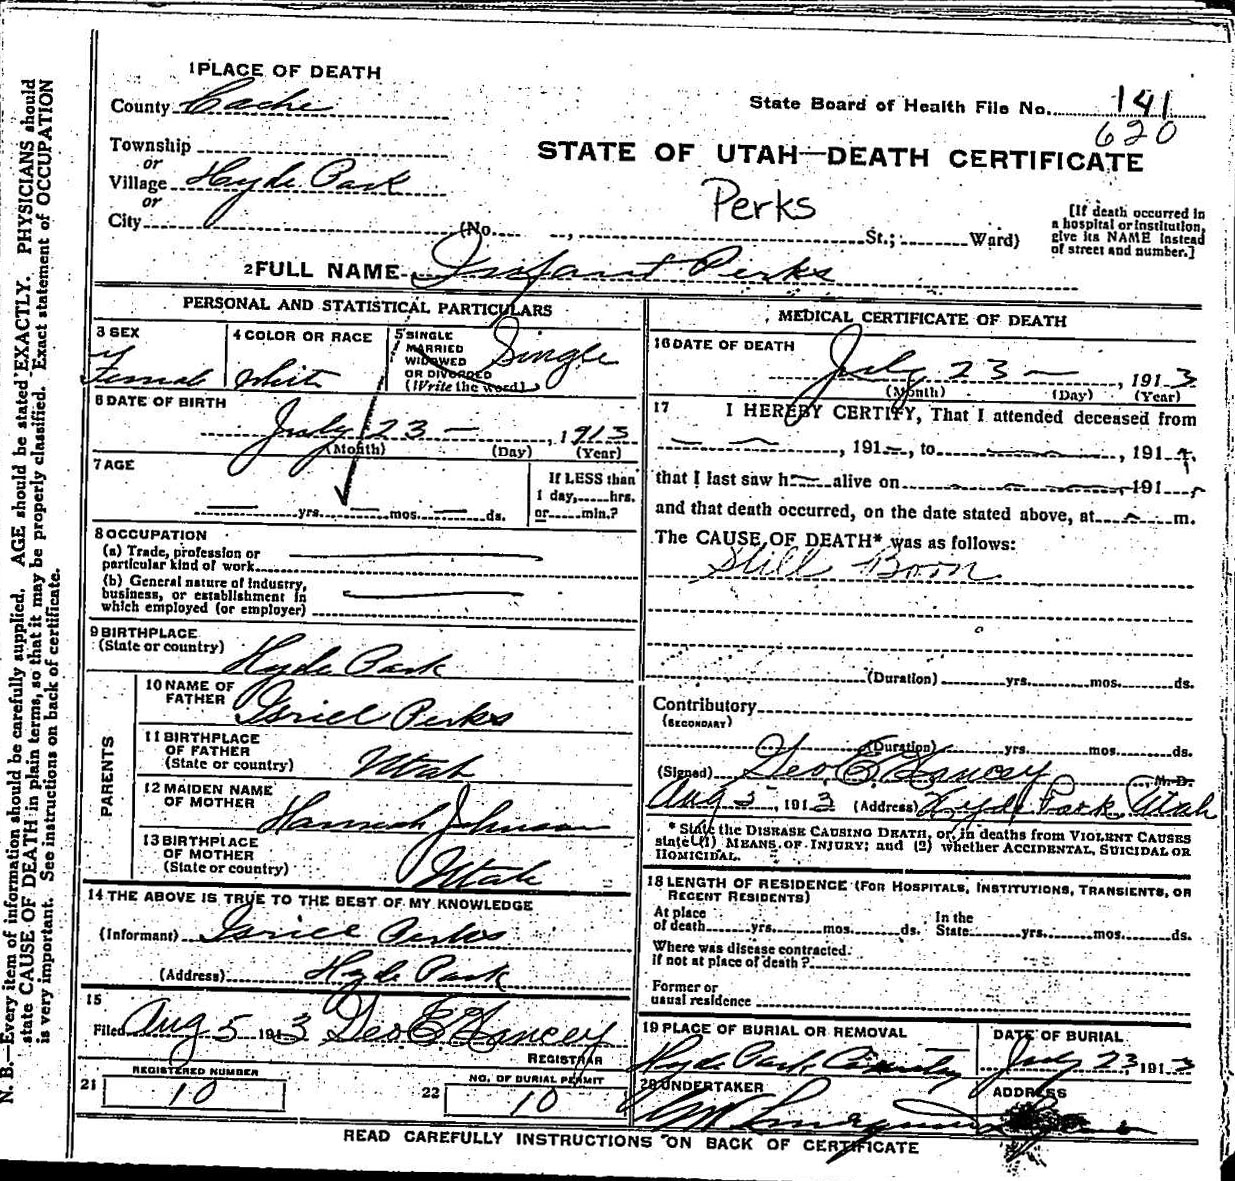 1 PLACE OF DEATH
County Cache
State Board of Health File No. 141
620
Township
or
Village Hyde Park
or
City
STATE OF UTAH—DEATH CERTIFICATE
Perks
(No. , St.; Ward)
[If death occurred in
a hospital or institution,
give its NAME instead
of street and number.]
2 FULL NAME Infant Perks
PERSONAL AND STATISTICAL PARTICULARS
3 SEX
Female
4 COLOR OR RACE
White
5 SINGLE
MARRIED
WIDOWED
OR DIVORCED
(Write the word)
Single
6 DATE OF BIRTH
July 23 — , 1913
(Month) (Day) (Year)
7 AGE
— yrs. — mos. — ds.
If LESS than
1 day, hrs.
or min.?
8 OCCUPATION
(a) Trade, profession or
particular kind of work
(b) General nature of industry,
business, or establishment in
which employed (or employer)
9 BIRTHPLACE
(State or country) Hyde Park
PARENTS
10 NAME OF
FATHER Isriel Perks
11 BIRTHPLACE
OF FATHER
(State or country) Utah
12 MAIDEN NAME
OF MOTHER Hannah Johnson
13 BIRTHPLACE
OF MOTHER
(State or country) Utah
14 THE ABOVE IS TRUE TO THE BEST OF MY KNOWLEDGE
(Informant) Isriel Perks
(Address) Hyde Park
15
Filed Aug 5 1913 Geo E Hancey
REGISTRAR
21 REGISTERED NUMBER
10
22 NO. OF BURIAL PERMIT
10
MEDICAL CERTIFICATE OF DEATH
16 DATE OF DEATH
July 23 — , 1913
(Month) (Day) (Year)
17 I HEREBY CERTIFY, That I attended deceased from
, 191 , to , 191
that I last saw h alive on 191
and that death occurred, on the date stated above, at m.
The CAUSE OF DEATH* was as follows:
Still Born
(Duration) yrs. mos. ds.
Contributory
(SECONDARY)
(Duration) yrs. mos. ds.
(Signed) Geo E Hancey M. D.
Aug 5 , 1913 (Address) Hyde Park Utah
* State the DISEASE CAUSING DEATH, or, in deaths from VIOLENT CAUSES
state (1) MEANS OF INJURY; and (2) whether ACCIDENTAL, SUICIDAL OR
HOMICIDAL.
18 LENGTH OF RESIDENCE (FOR HOSPITALS, INSTITUTIONS, TRANSIENTS, OR
RECENT RESIDENTS)
At place
of death yrs. mos. ds.
In the
State yrs. mos. ds.
Where was disease contracted.
if not at place of death?
Former or
usual residence
19 PLACE OF BURIAL OR REMOVAL
Hyde Park Cemetery
DATE OF BURIAL
July 23 1913
20 UNDERTAKER
ADDRESS
READ CAREFULLY INSTRUCTIONS ON BACK OF CERTIFICATE
N. B.—Every item of information should be carefully supplied. AGE should be stated EXACTLY. PHYSICIANS should
state CAUSE OF DEATH in plain terms, so that it may be properly classified. Exact statement of OCCUPATION
is very important. See instructions on back of certificate.